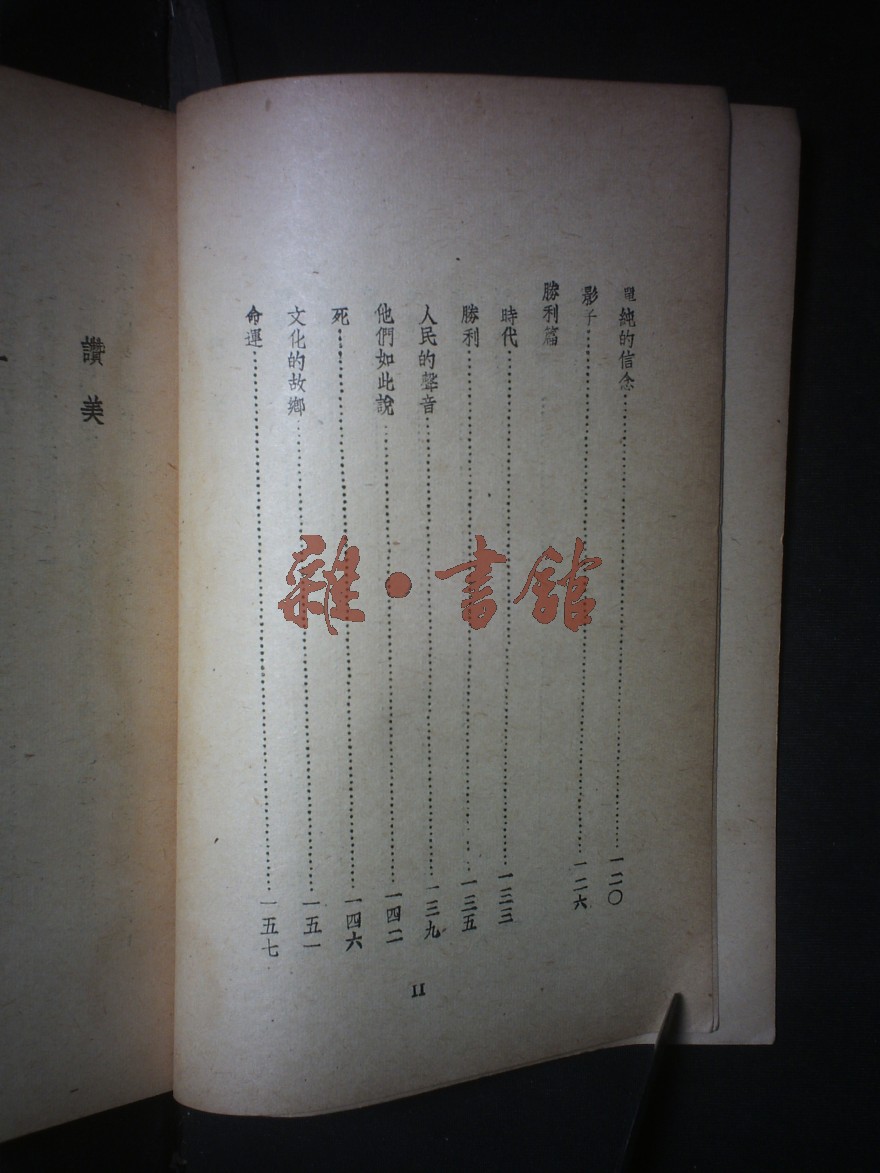 單純的信念……一二〇
影子……一二六
勝利篇
時代……一三三
勝利……一三五
人民的聲音……一三九
他們如此說……一四二
死……一四六
文化的故鄉……一五一
命運……一五七
II
讚美
雜·書館